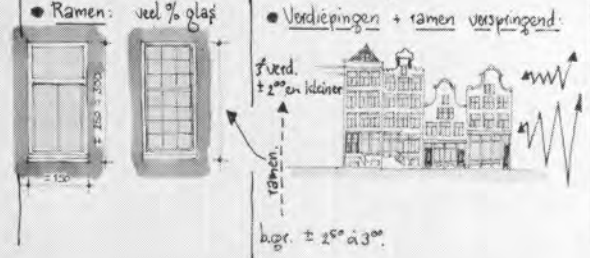 • Ramen: veel % glas
± 250 à 300
± 150
• Verdiepingen + ramen verspringend:
1e verd.
± 2⁰⁰ en kleiner
ramen.
b.gr. ± 2⁵⁰ à 3⁰⁰.